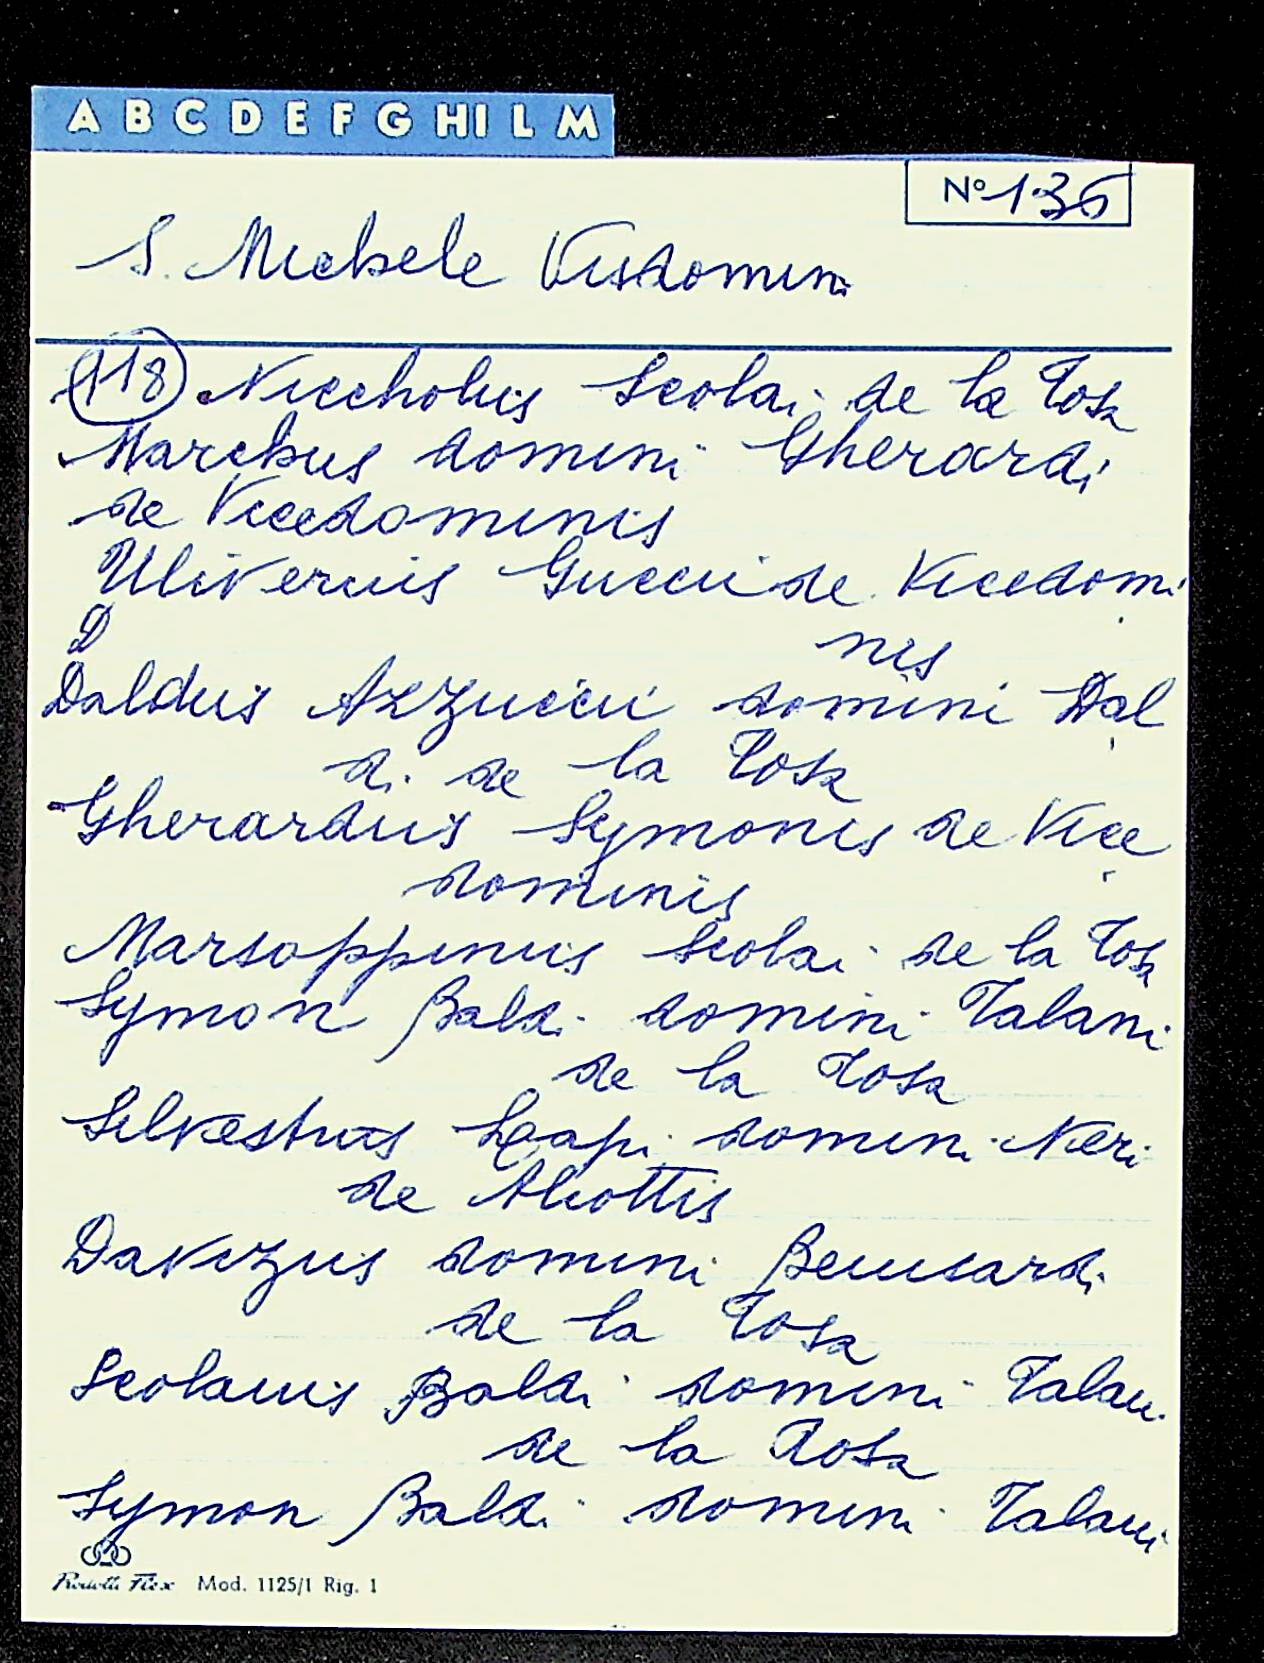 A B C D E F G HI L M
Nº 136
S. Michele Visdomini
(118) Niccholus Scolai de la Tosa
Marchus domini Gherardi
de Vicedominis
Uliverius Guccii de Vicedomi
nis
D
Daldus Azzuccii domini Dal
di de la Tosa
Gherardus Symonis de Vice
dominis
Marsoppinus Scolai de la Tosa
Symon Baldi domini Talani
de la Tosa
Silvestrus Lapi domini Neri
de Aliottis
Davizus domini
de la Tosa
Scolarius Baldi domini Talani
de la Tosa
Symon Baldi domini Talani
Flex Mod. 1125/1 Rig. 1